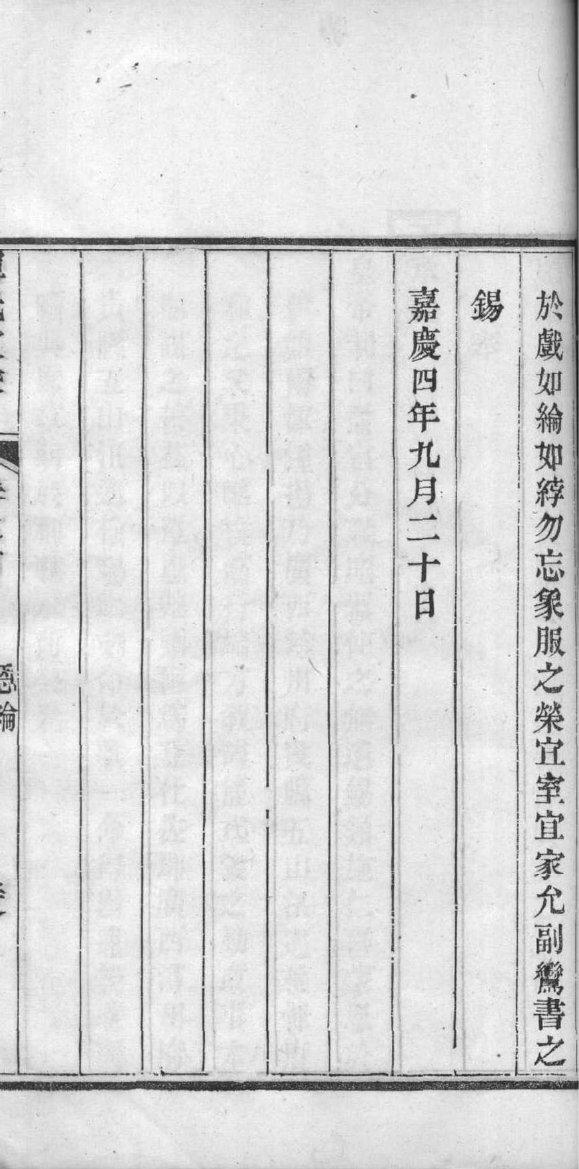 於戲如綸如綍勿忘象服之榮宜室宜家允副鸞書之
錫
嘉慶四年九月二十日
恩綸